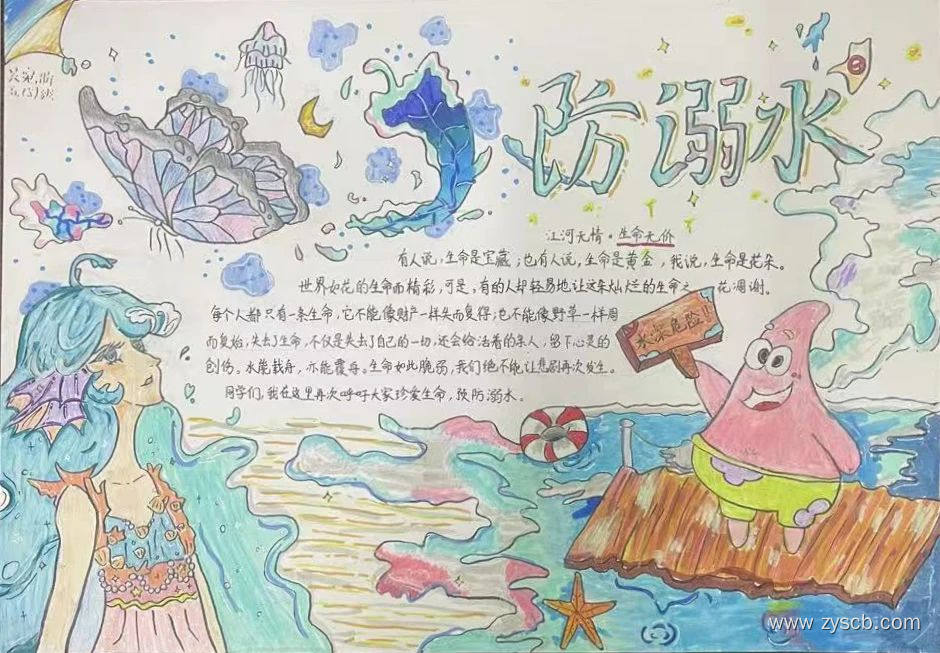 防溺水
江河无情·生命无价
有人说，生命是宝藏；也有人说，生命是黄金，我说，生命是花朵。
世界如花的生命而精彩，可是，有的人却轻易地让这朵灿烂的生命之 花凋谢。
每个人都只有一条生命，它不能像财产一样失而复得；也不能像野草一样周
而复始，失去了生命，不仅是失去了自己的一切，还会给活着的亲人，留下心灵的
创伤。水能载舟，亦能覆舟。生命如此脆弱，我们绝不能让悲剧再次发生。
同学们，我在这里再次呼吁大家珍爱生命，预防溺水。
水深危险！！
www.zyscb.com